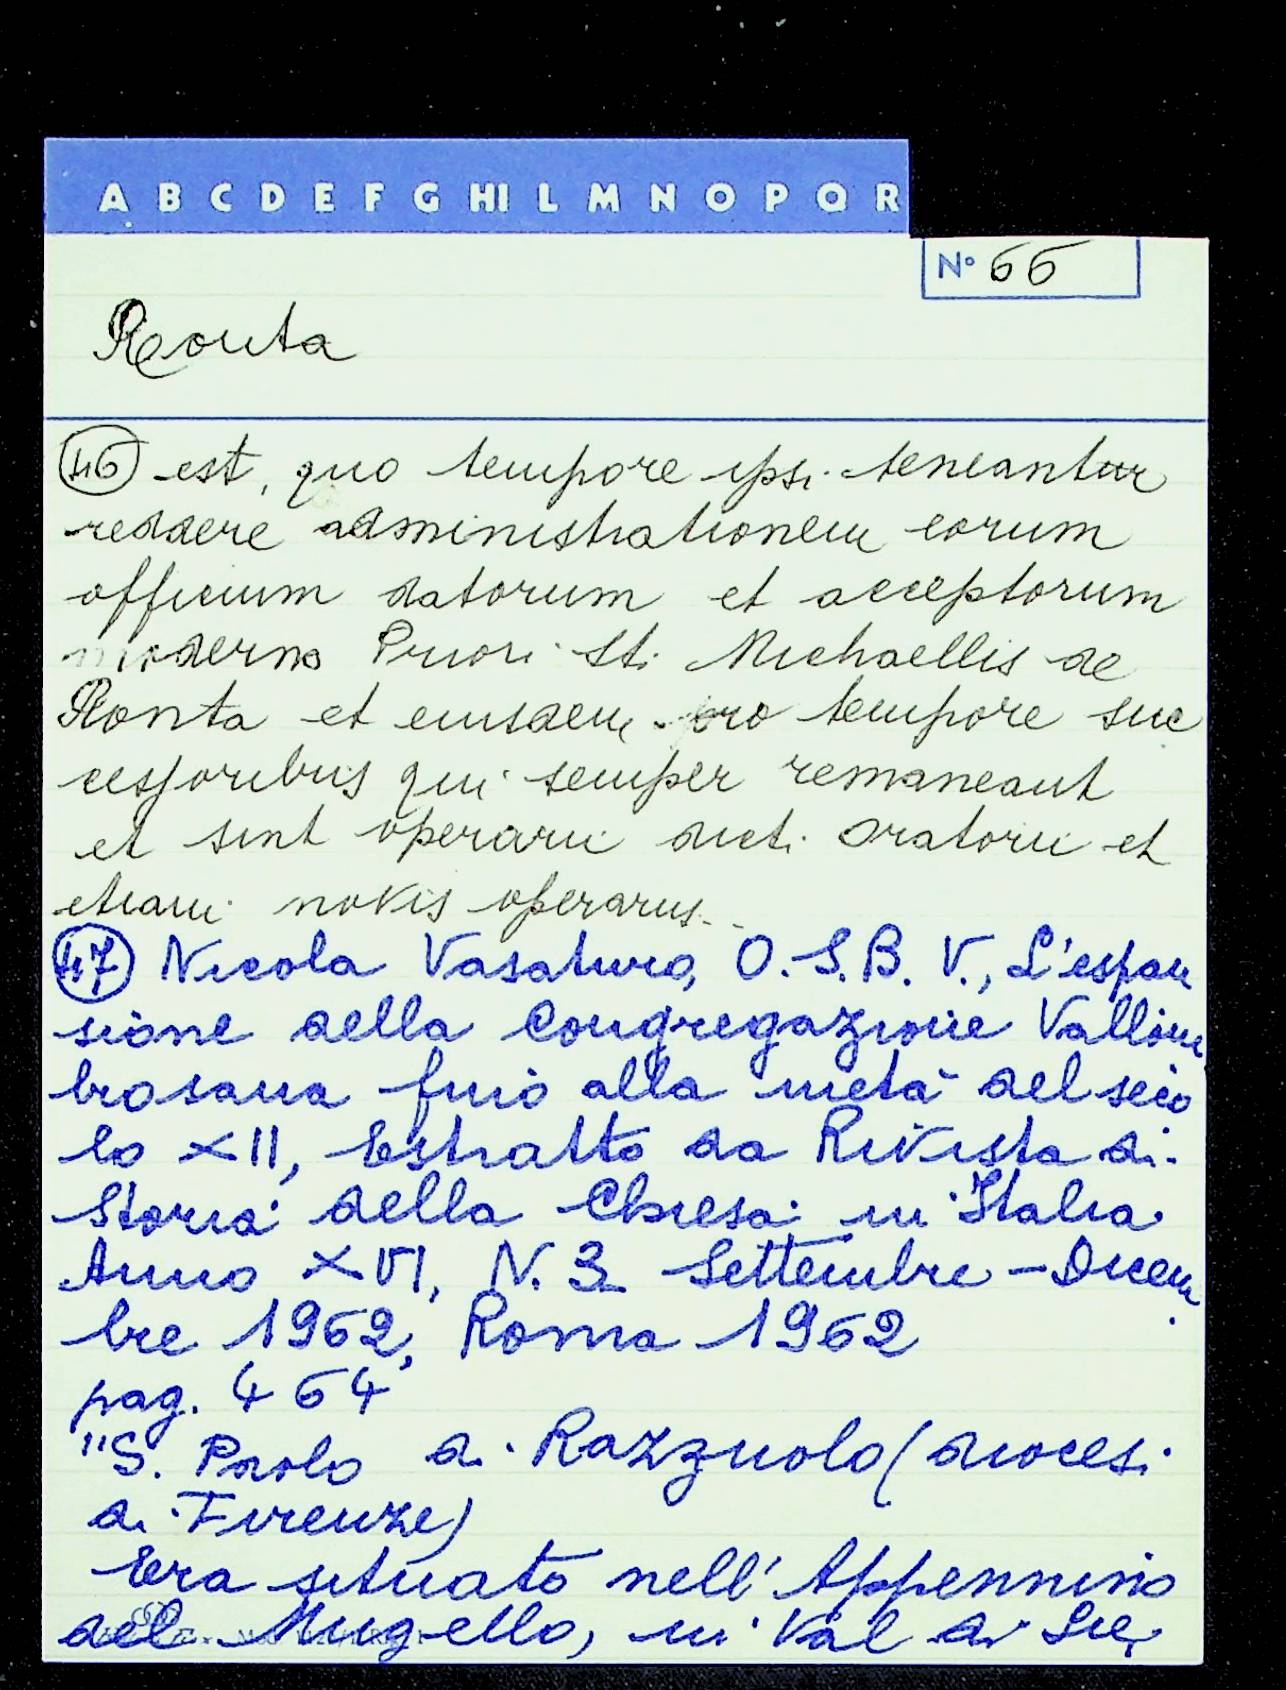 A B C D E F G HI L M N O P Q R
N° 66
Ronta
46 est, quo tempore ipsi teneantur
reddere administrationem eorum
officium datorum et acceptorum
moderno Priori Sti Michaellis de
Ronta et eiusdem pro tempore suc
cessoribus qui semper remaneant
et sint operarii dicti Oratorii et
etiam novis operariis.
47 Nicola Vasaturo, O.S.B.V., L'espan
sione della Congregazione Vallom
brosana fino alla metà del seco
lo XII, Estratto da Rivista di
Storia della Chiesa in Italia
Anno XVI, N. 3 Settembre - Dicem
bre 1962, Roma 1962
pag. 464
"S. Paolo di Razzuolo (diocesi
di Firenze)
Era situato nell'Appennino
del Mugello, in Val di Sie,